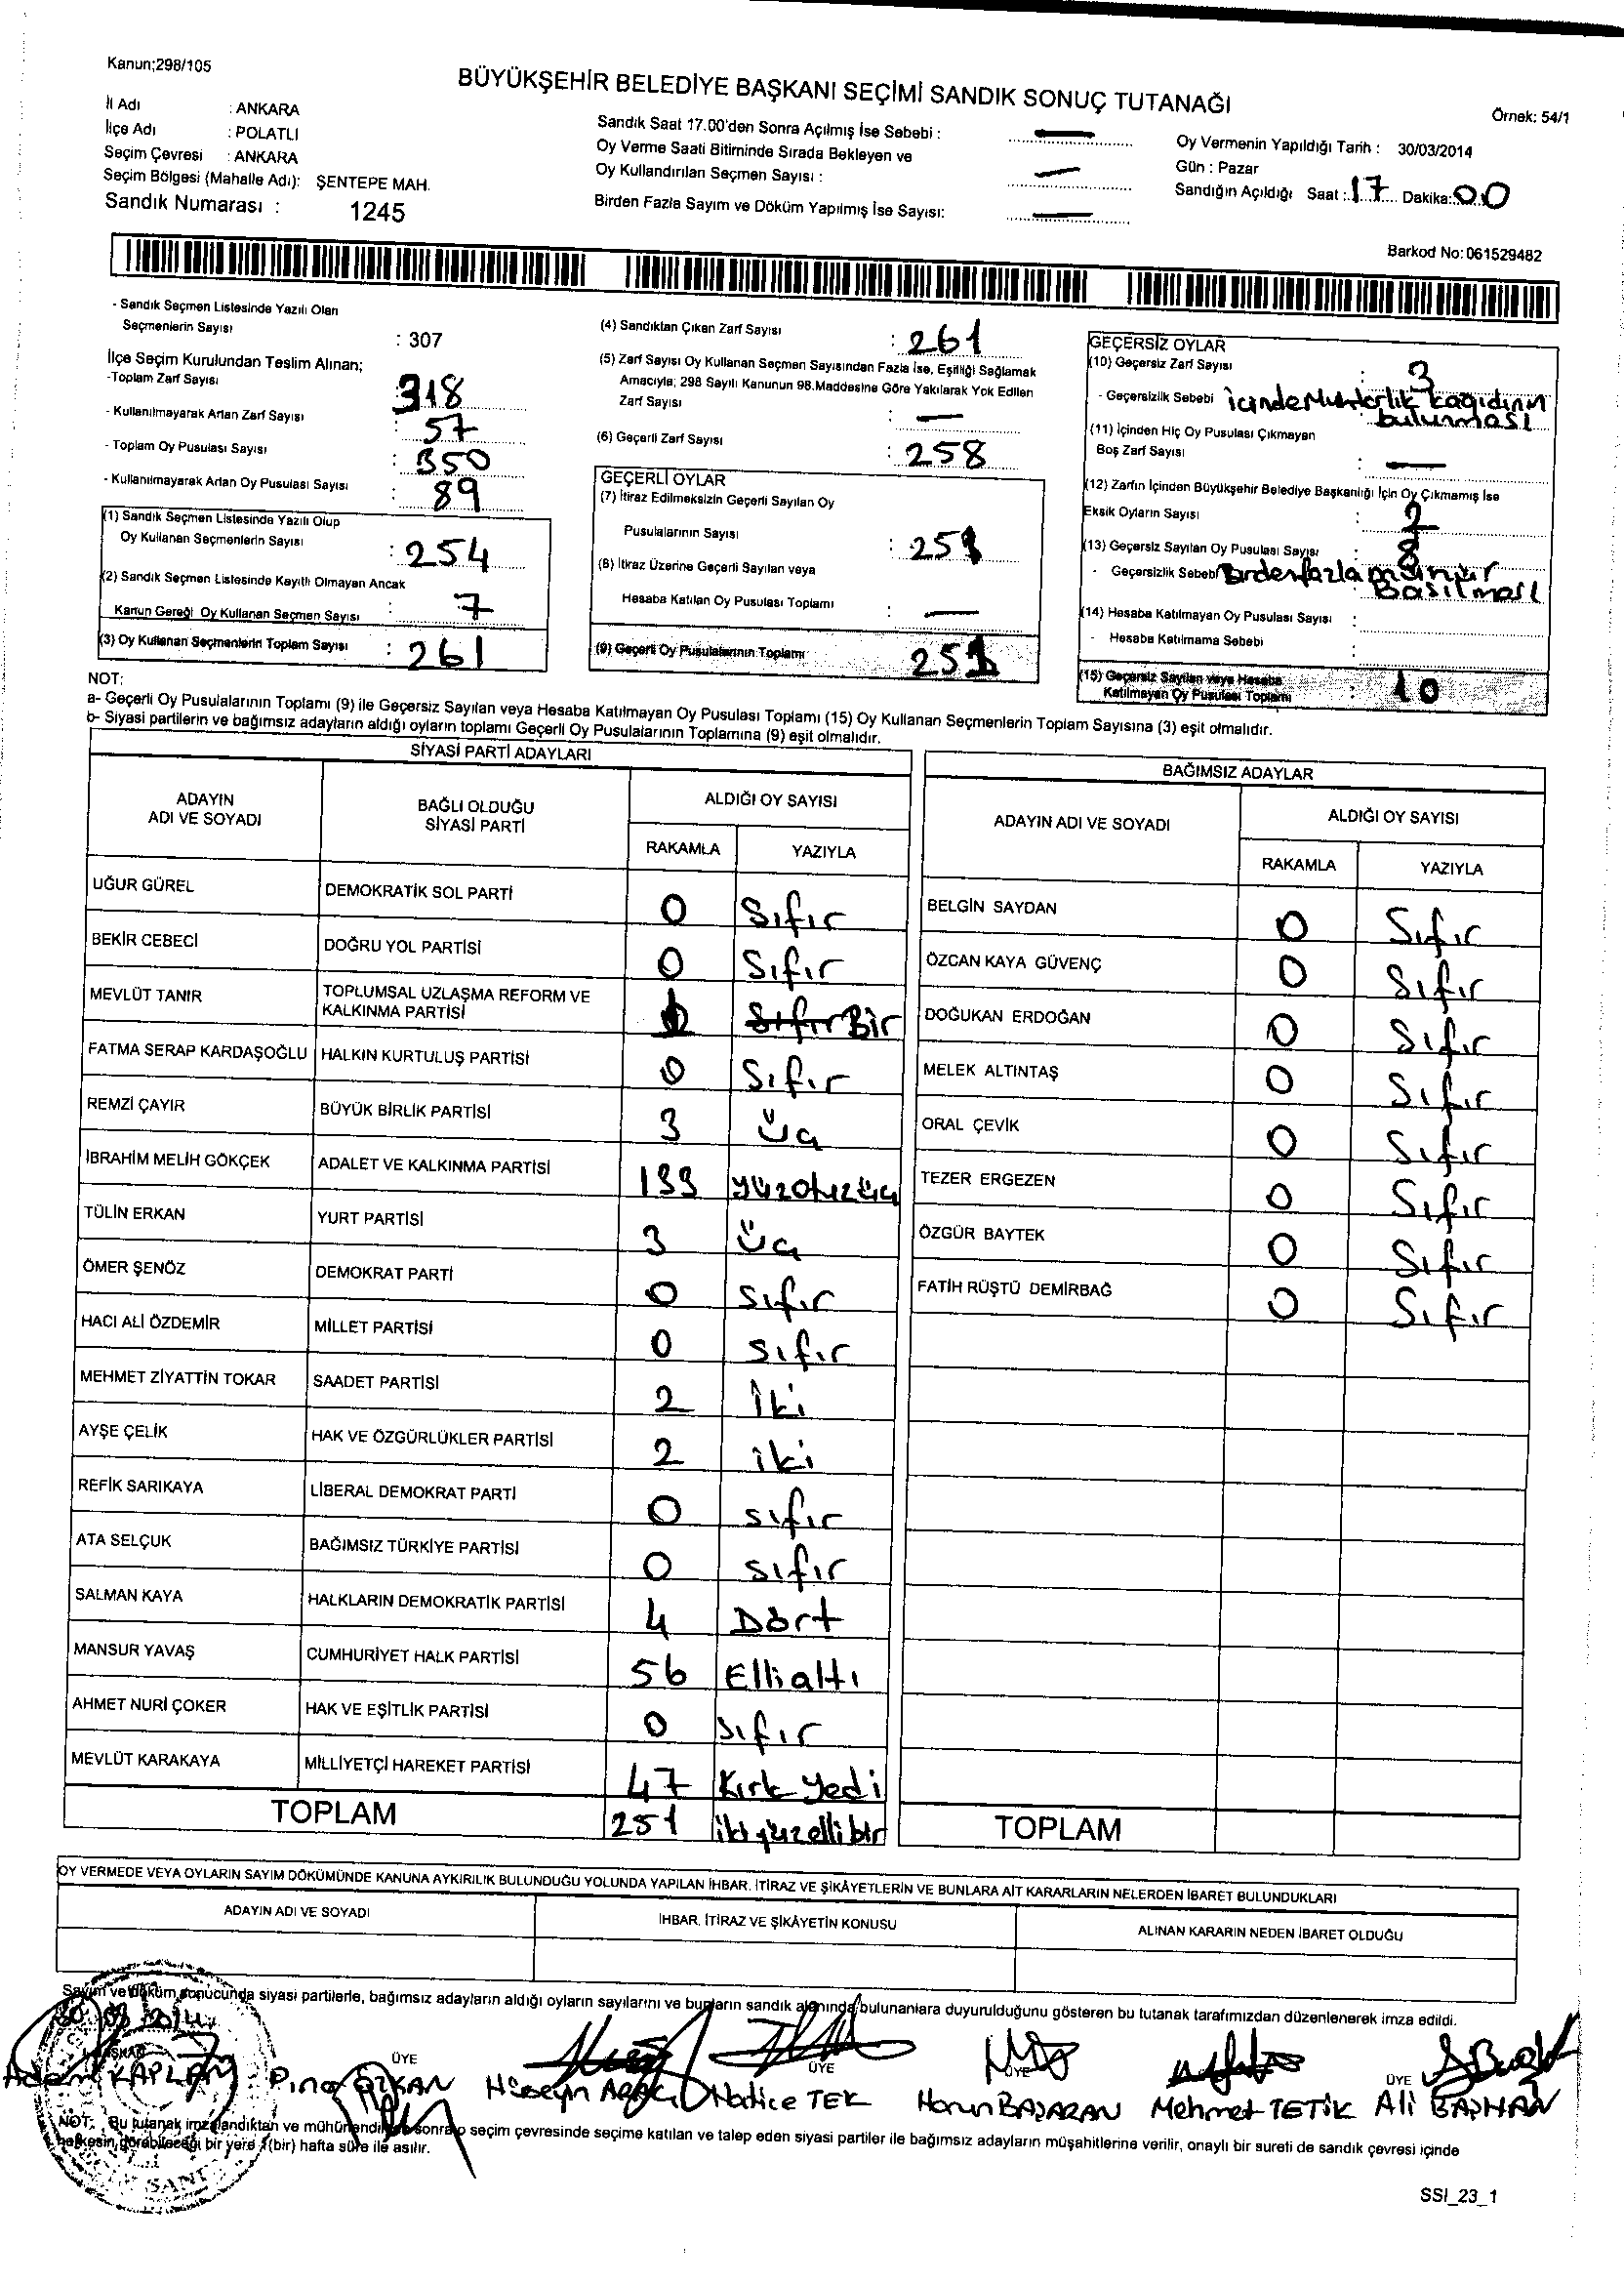 Kanun;298/105
BÜYÜKŞEHİR BELEDİYE BAŞKANI SEÇİMİ SANDIK SONUÇ TUTANAĞI
Örnek: 54/1
İl Adı : ANKARA
İlçe Adı : POLATLI
Seçim Çevresi : ANKARA
Seçim Bölgesi (Mahalle Adı): ŞENTEPE MAH.
Sandık Numarası : 1245
Sandık Saat 17.00'den Sonra Açılmış İse Sebebi : —
Oy Verme Saati Bitiminde Sırada Bekleyen ve
Oy Kullandırılan Seçmen Sayısı : —
Birden Fazla Sayım ve Döküm Yapılmış İse Sayısı: —
Oy Vermenin Yapıldığı Tarih : 30/03/2014
Gün : Pazar
Sandığın Açıldığı Saat : 17 Dakika: 00
Barkod No: 061529482
- Sandık Seçmen Listesinde Yazılı Olan
Seçmenlerin Sayısı : 307
İlçe Seçim Kurulundan Teslim Alınan;
-Toplam Zarf Sayısı : 318
- Kullanılmayarak Artan Zarf Sayısı : 57
- Toplam Oy Pusulası Sayısı : 350
- Kullanılmayarak Artan Oy Pusulası Sayısı : 89
(1) Sandık Seçmen Listesinde Yazılı Olup
Oy Kullanan Seçmenlerin Sayısı : 254
(2) Sandık Seçmen Listesinde Kayıtlı Olmayan Ancak
Kanun Gereği Oy Kullanan Seçmen Sayısı : 7
(3) Oy Kullanan Seçmenlerin Toplam Sayısı : 261
(4) Sandıktan Çıkan Zarf Sayısı : 261
(5) Zarf Sayısı Oy Kullanan Seçmen Sayısından Fazla İse, Eşitliği Sağlamak
Amacıyla; 298 Sayılı Kanunun 98.Maddesine Göre Yakılarak Yok Edilen
Zarf Sayısı : —
(6) Geçerli Zarf Sayısı : 258
GEÇERLİ OYLAR
(7) İtiraz Edilmeksizin Geçerli Sayılan Oy
Pusulalarının Sayısı : 251
(8) İtiraz Üzerine Geçerli Sayılan veya
Hesaba Katılan Oy Pusulası Toplamı : —
(9) Geçerli Oy Pusulalarının Toplamı 251
GEÇERSİZ OYLAR
(10) Geçersiz Zarf Sayısı : 3
- Geçersizlik Sebebi içinde Muhtarlık kağıdının
bulunması
(11) İçinden Hiç Oy Pusulası Çıkmayan
Boş Zarf Sayısı : —
(12) Zarfın İçinden Büyükşehir Belediye Başkanlığı İçin Oy Çıkmamış İse
Eksik Oyların Sayısı : 2
(13) Geçersiz Sayılan Oy Pusulası Sayısı : 8
- Geçersizlik Sebebi Birden fazla mühür
Basılması
(14) Hesaba Katılmayan Oy Pusulası Sayısı :
- Hesaba Katılmama Sebebi
(15) Geçersiz Sayılan veya Hesaba
Katılmayan Oy Pusulası Toplamı : 10
NOT:
a- Geçerli Oy Pusulalarının Toplamı (9) ile Geçersiz Sayılan veya Hesaba Katılmayan Oy Pusulası Toplamı (15) Oy Kullanan Seçmenlerin Toplam Sayısına (3) eşit olmalıdır.
b- Siyasi partilerin ve bağımsız adayların aldığı oyların toplamı Geçerli Oy Pusulalarının Toplamına (9) eşit olmalıdır.
SİYASİ PARTİ ADAYLARI
ADAYIN ADI VE SOYADI BAĞLI OLDUĞU SİYASİ PARTİ ALDIĞI OY SAYISI
RAKAMLA YAZIYLA
UĞUR GÜREL DEMOKRATİK SOL PARTİ 0 Sıfır
BEKİR CEBECİ DOĞRU YOL PARTİSİ 0 Sıfır
MEVLÜT TANIR TOPLUMSAL UZLAŞMA REFORM VE KALKINMA PARTİSİ 1 Sıfır Bir
FATMA SERAP KARDAŞOĞLU HALKIN KURTULUŞ PARTİSİ 0 Sıfır
REMZİ ÇAYIR BÜYÜK BİRLİK PARTİSİ 3 üç
İBRAHİM MELİH GÖKÇEK ADALET VE KALKINMA PARTİSİ 133 yüzotuzüç
TÜLİN ERKAN YURT PARTİSİ 3 üç
ÖMER ŞENÖZ DEMOKRAT PARTİ 0 sıfır
HACI ALİ ÖZDEMİR MİLLET PARTİSİ 0 sıfır
MEHMET ZİYATTİN TOKAR SAADET PARTİSİ 2 İki
AYŞE ÇELİK HAK VE ÖZGÜRLÜKLER PARTİSİ 2 iki
REFİK SARIKAYA LİBERAL DEMOKRAT PARTİ 0 sıfır
ATA SELÇUK BAĞIMSIZ TÜRKİYE PARTİSİ 0 sıfır
SALMAN KAYA HALKLARIN DEMOKRATİK PARTİSİ 4 Dört
MANSUR YAVAŞ CUMHURİYET HALK PARTİSİ 56 Elli altı
AHMET NURİ ÇOKER HAK VE EŞİTLİK PARTİSİ 0 sıfır
MEVLÜT KARAKAYA MİLLİYETÇİ HAREKET PARTİSİ 47 Kırk yedi
TOPLAM 251 ikiyüzelli bir
BAĞIMSIZ ADAYLAR
ADAYIN ADI VE SOYADI ALDIĞI OY SAYISI
RAKAMLA YAZIYLA
BELGİN SAYDAN 0 Sıfır
ÖZCAN KAYA GÜVENÇ 0 Sıfır
DOĞUKAN ERDOĞAN 0 Sıfır
MELEK ALTINTAŞ 0 Sıfır
ORAL ÇEVİK 0 Sıfır
TEZER ERGEZEN 0 Sıfır
ÖZGÜR BAYTEK 0 Sıfır
FATİH RÜŞTÜ DEMİRBAĞ 0 Sıfır
TOPLAM
OY VERMEDE VEYA OYLARIN SAYIM DÖKÜMÜNDE KANUNA AYKIRILIK BULUNDUĞU YOLUNDA YAPILAN İHBAR, İTİRAZ VE ŞİKÂYETLERİN VE BUNLARA AİT KARARLARIN NELERDEN İBARET BULUNDUKLARI
ADAYIN ADI VE SOYADI İHBAR, İTİRAZ VE ŞİKÂYETİN KONUSU ALINAN KARARIN NEDEN İBARET OLDUĞU
Sayım ve döküm sonucunda siyasi partilerle, bağımsız adayların aldığı oyların sayılarını ve bunların sandık alanında bulunanlara duyurulduğunu gösteren bu tutanak tarafımızdan düzenlenerek imza edildi.
30/03/2014
BAŞKAN ÜYE ÜYE ÜYE ÜYE
Adem KAPLAN Pınar ÖZKAN Hüseyin Hatice TEK Harun BAŞARAN Mehmet TETİK Ali BAŞHAN
NOT: Bu tutanak imzalandıktan ve mühürlendikten sonra o seçim çevresinde seçime katılan ve talep eden siyasi partiler ile bağımsız adayların müşahitlerine verilir, onaylı bir sureti de sandık çevresi içinde
herkesin görebileceği bir yere 1(bir) hafta süre ile asılır.
SSI_23_1